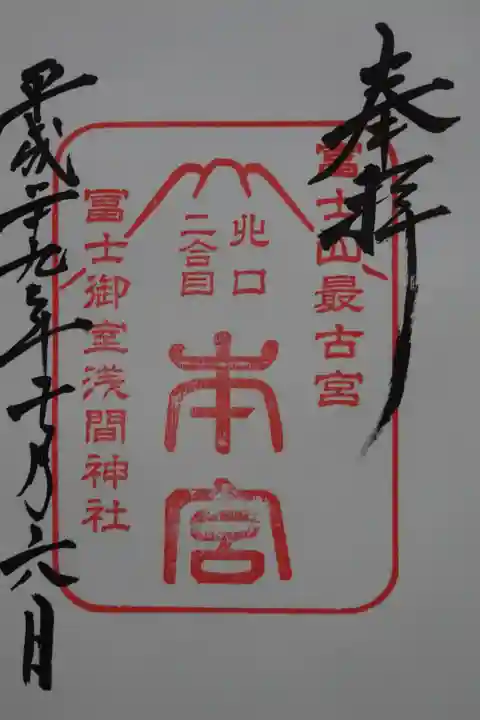 奉拝
冨士山最古宮
北口
二合目
本宮
冨士御室浅間神社
平成二十九年十月六日